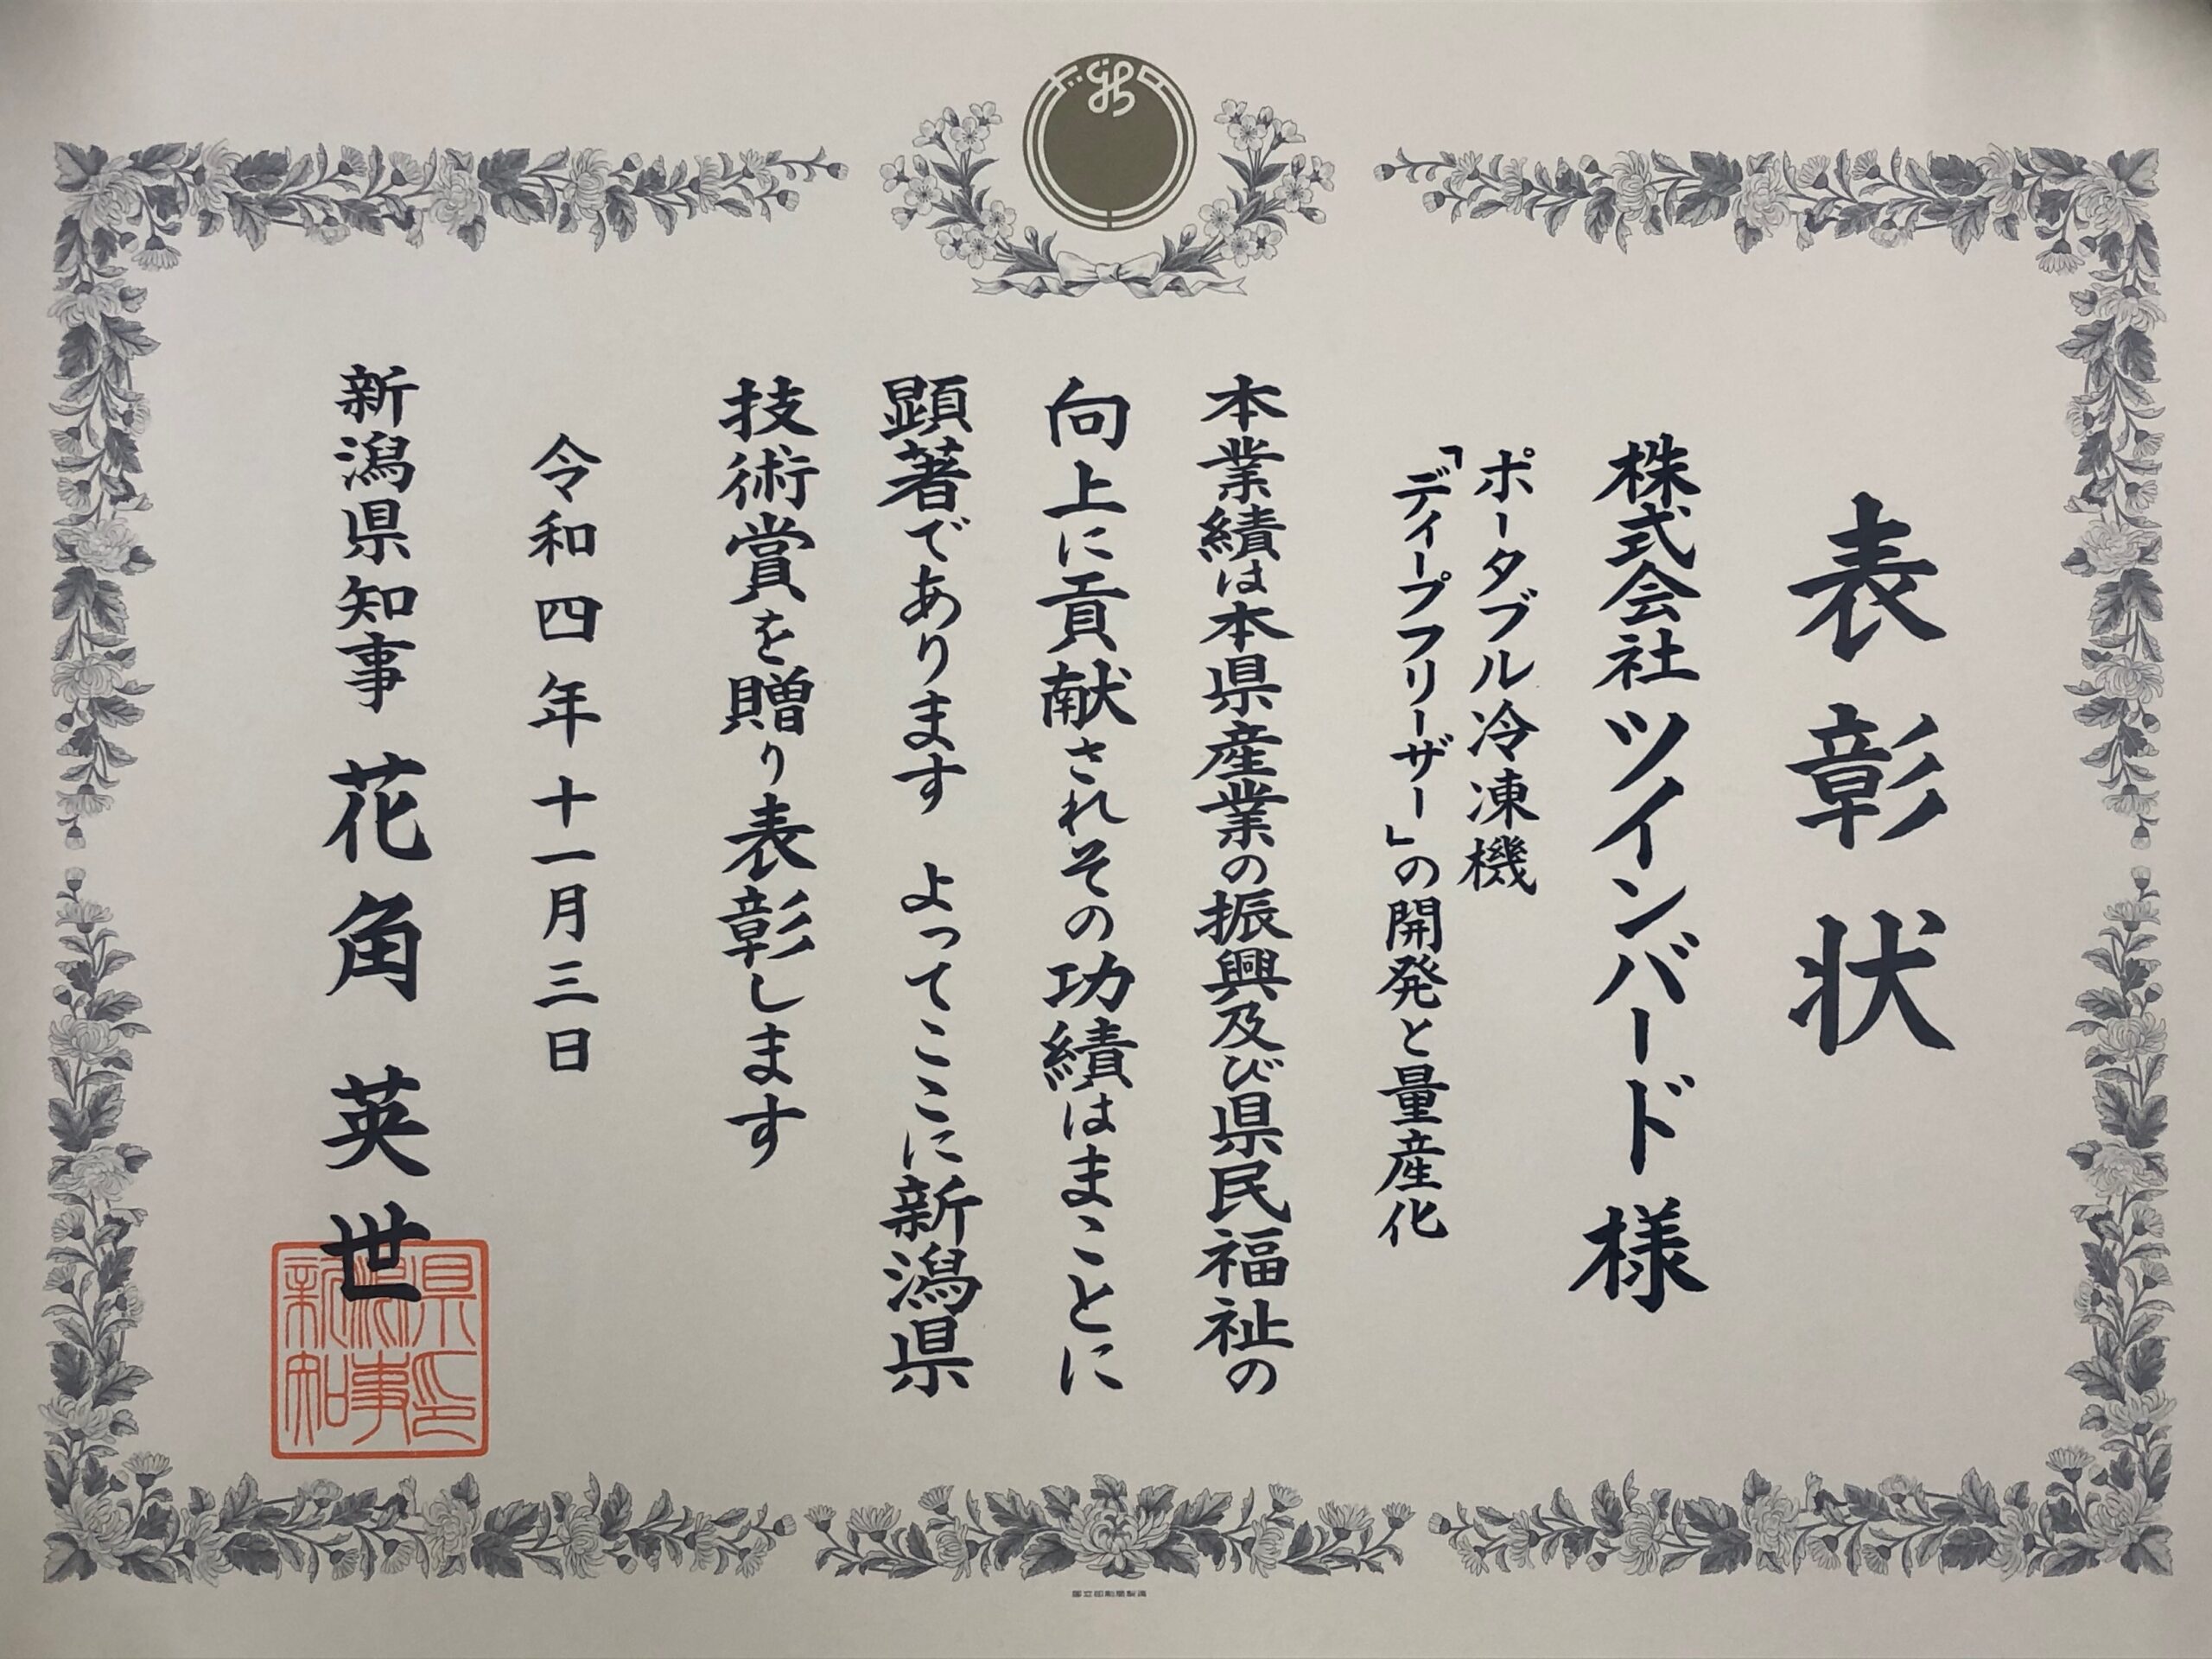 表彰状
株式会社ツインバード様
ポータブル冷凍機
「ディープフリーザー」の開発と量産化
本業績は本県産業の振興及び県民福祉の
向上に貢献されその功績はまことに
顕著であります よってここに新潟県
技術賞を贈り表彰します
令和四年十一月三日
新潟県知事 花角英世
新潟県知事印
国立印刷局製造